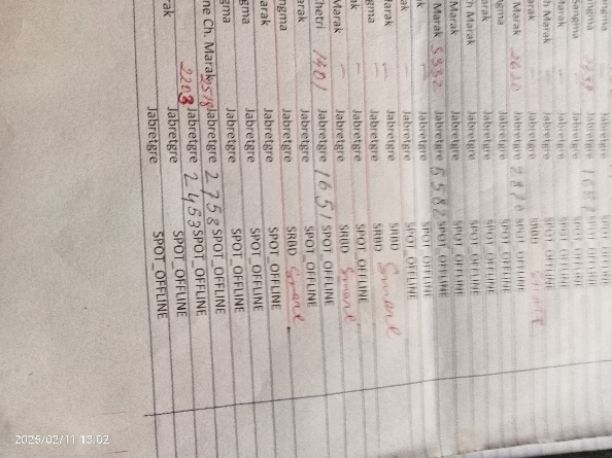 Sangma Jabretgre SPOT_OFFLINE
Marak Jabretgre SPOT_OFFLINE
h Marak Jabretgre SPOT_OFFLINE
arak Jabretgre SRBD
Marak Jabretgre 2876 SPOT_OFFLINE
ngma Jabretgre SPOT_OFFLINE
arak Jabretgre SPOT_OFFLINE
Ch Marak Jabretgre SPOT_OFFLINE
Marak Jabretgre SPOT_OFFLINE
Marak 5332 Jabretgre 5582 SPOT_OFFLINE
Jabretgre SPOT_OFFLINE
ak Jabretgre SPOT_OFFLINE
Marak Jabretgre SRBD Smart
gma Jabretgre SRBD
ak Jabretgre SPOT_OFFLINE
Marak Jabretgre SRBD Smart
hetri 1401 Jabretgre 1651 SPOT_OFFLINE
arak Jabretgre SPOT_OFFLINE
ngma Jabretgre SRBD Smart
arak Jabretgre SPOT_OFFLINE
arak Jabretgre SPOT_OFFLINE
gma Jabretgre SPOT_OFFLINE
gma Jabretgre SPOT_OFFLINE
ne Ch. Marak 2518 Jabretgre 2758 SPOT_OFFLINE
2203 Jabretgre 2453 SPOT_OFFLINE
Jabretgre SPOT_OFFLINE
rak Jabretgre SPOT_OFFLINE
2026/02/11 13:02